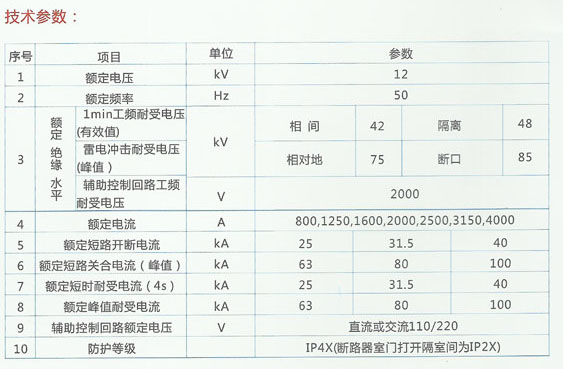 技术参数：
序号 项目 单位 参数
1 额定电压 kV 12
2 额定频率 Hz 50
3 额定 绝缘 水平 1min工频耐受电压(有效值) kV 相 间 42 隔离 48
雷电冲击耐受电压(峰值） 相对地 75 断口 85
辅助控制回路工频耐受电压 V 2000
4 额定电流 A 800,1250,1600,2000,2500,3150,4000
5 额定短路开断电流 kA 25 31.5 40
6 额定短路关合电流（峰值） kA 63 80 100
7 额定短时耐受电流（4s） kA 25 31.5 40
8 额定峰值耐受电流 kA 63 80 100
9 辅助控制回路额定电压 V 直流或交流110/220
10 防护等级 IP4X(断路器室门打开隔室间为IP2X)